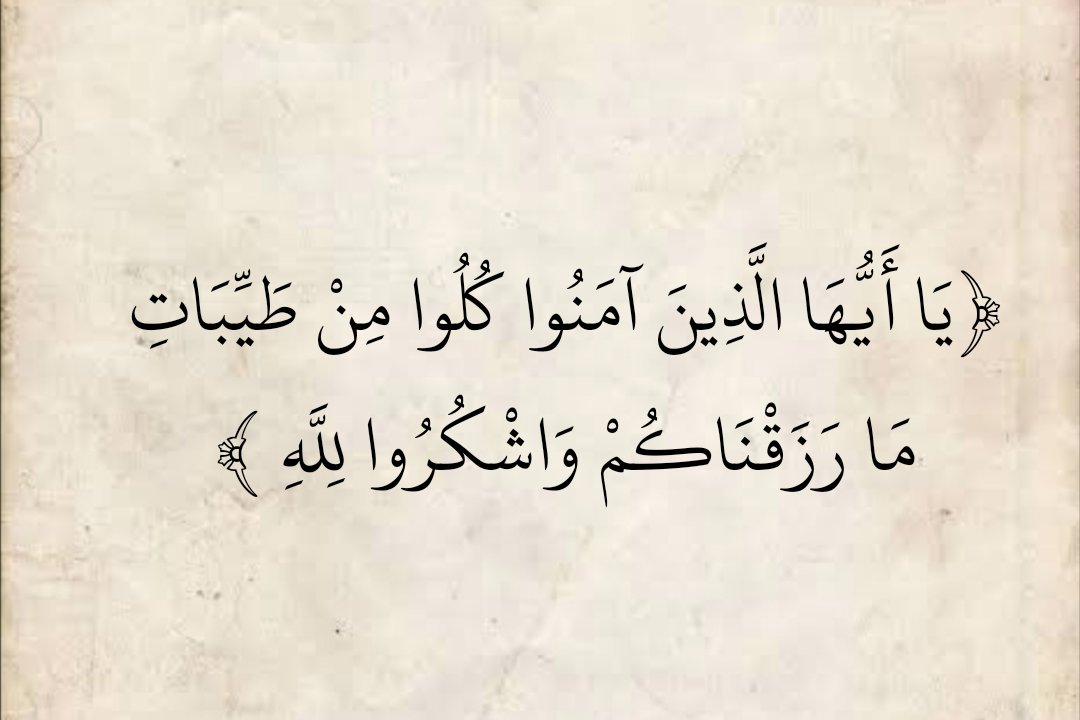 ﴿يَا أَيُّهَا الَّذِينَ آمَنُوا كُلُوا مِنْ طَيِّبَاتِ
مَا رَزَقْنَاكُمْ وَاشْكُرُوا لِلَّهِ ﴾